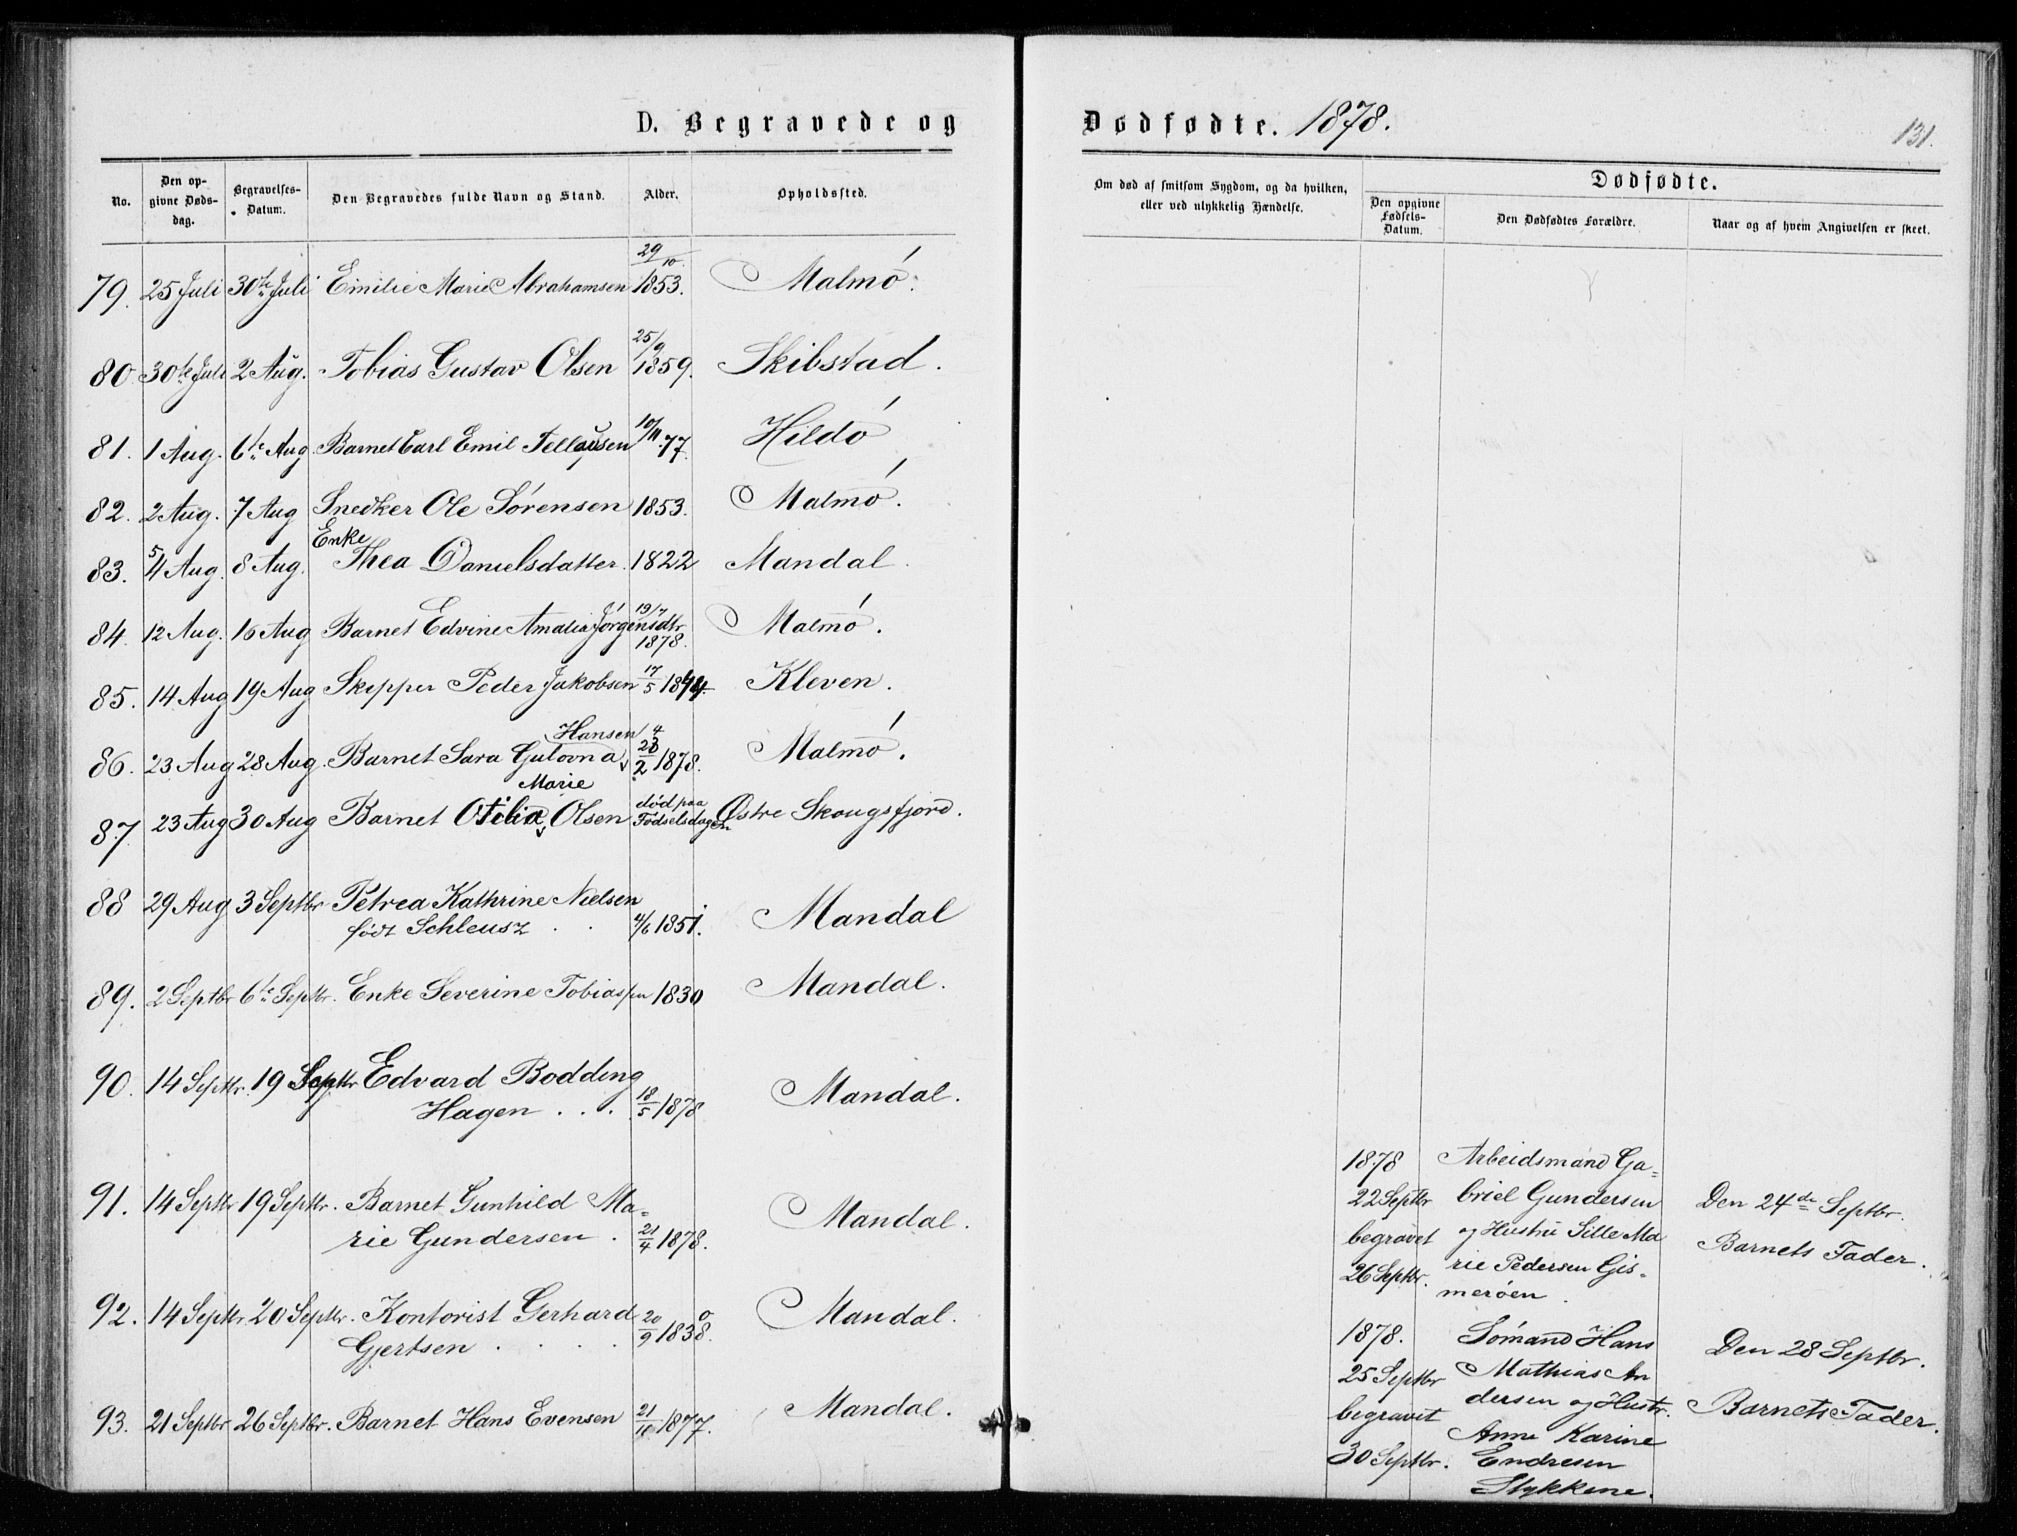 D. Begravede og Dødfødte. 1878.
131.
No. Den opgivne Dødsdag. Begravelses-Datum. Den Begravedes fulde Navn og Stand. Alder. Opholdssted.
Om død af smitsom Sygdom, og da hvilken, eller ved ulykkelig Hændelse.
Dødfødte.
Den opgivne Fødsels-Datum. Den Dødfødtes Forældre. Naar og af hvem Angivelsen er skeet.
79. 25 Juli 30te Juli Emilie Marie Abrahamsen 29/10 1853. Malmö.
80 30te Juli 2 Aug. Tobias Gustav Olsen 25/9 1859. Skibstad.
81. 1 Aug. 6te Aug Barnet Carl Emil Tellefsen 10/11 77. Hildö
82. 2 Aug. 7 Aug Snedker Ole Sörensen 1853. Malmö.
83. 5 4 Aug. 8 Aug. Enke Thea Danielsdatter. 1822 Mandal.
84. 12 Aug. 16 Aug Barnet Edvine Amalia Jörgensdtr 19/7 1878. Malmö.
85. 14 Aug 19 Aug Skipper Peder Jakobsen 17/5 1844. Kleven.
86. 23 Aug 28 Aug. Barnet Sara Gulovna Hansen 2/2 1878. Malmö.
87 23 Aug 30 Aug Barnet Otilia Marie Olsen død paa Fødselsdagen Østre Skougsfjord.
88 29 Aug 3 Septbr Petrea Kathrine Nielsen
født Schleusz . . 4/6 1851. Mandal
89. 2 Septbr 6te Septbr. Enke Severine Tobiassen 1830 Mandal.
90. 14 Septbr. 19 Septbr Edvard Bodding
Hagen . . . 18/5 1878 Mandal.
91. 14 Septbr 19 Septbr. Barnet Gunhild Ma-
rie Gundersen . 21/4 1878. Mandal.
92. 14 Septbr 20 Septbr. Kontorist Gerhard
Gjertsen . . . . 20/9 1838. Mandal.
93. 21 Septbr 26 Septbr. Barnet Hans Evensen 21/10 1877. Mandal.
1878 Arbeidsmand Ga-
22 Septbr briel Gundersen Den 24de Septbr.
begravet og Hustru Sille Ma
26 Septbr. rie Pedersen Gis- Barnets Fader.
meröen.
1878. Sömand Hans Den 28 Septbr.
25 Septbr Mathias An
begravet dersen og Hustr. Barnets Fader.
Anne Karine
30 Septbr. Endresen
Stykkene.